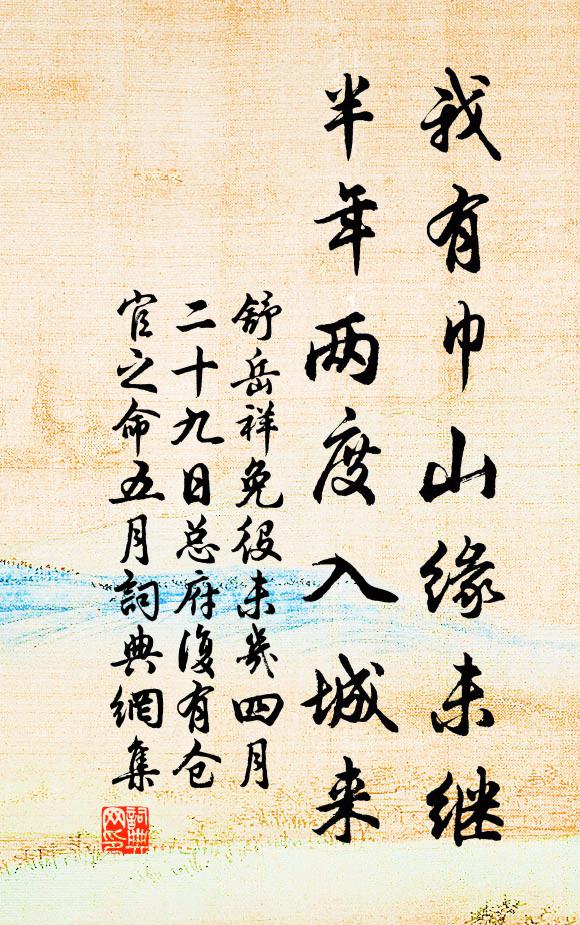 我有巾山缘未继
半年两度入城来
舒岳祥免役未几四月
二十九日总府复有仓
官之命五月詞典網集
詞典
网印